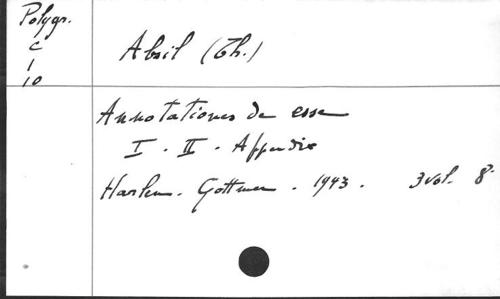 Polygr.
C
1
10
Absil (Th.)
Annotationes de esse
I . II . Appendix
Harlem. Gottmer . 1943 . 3 vol. 8°